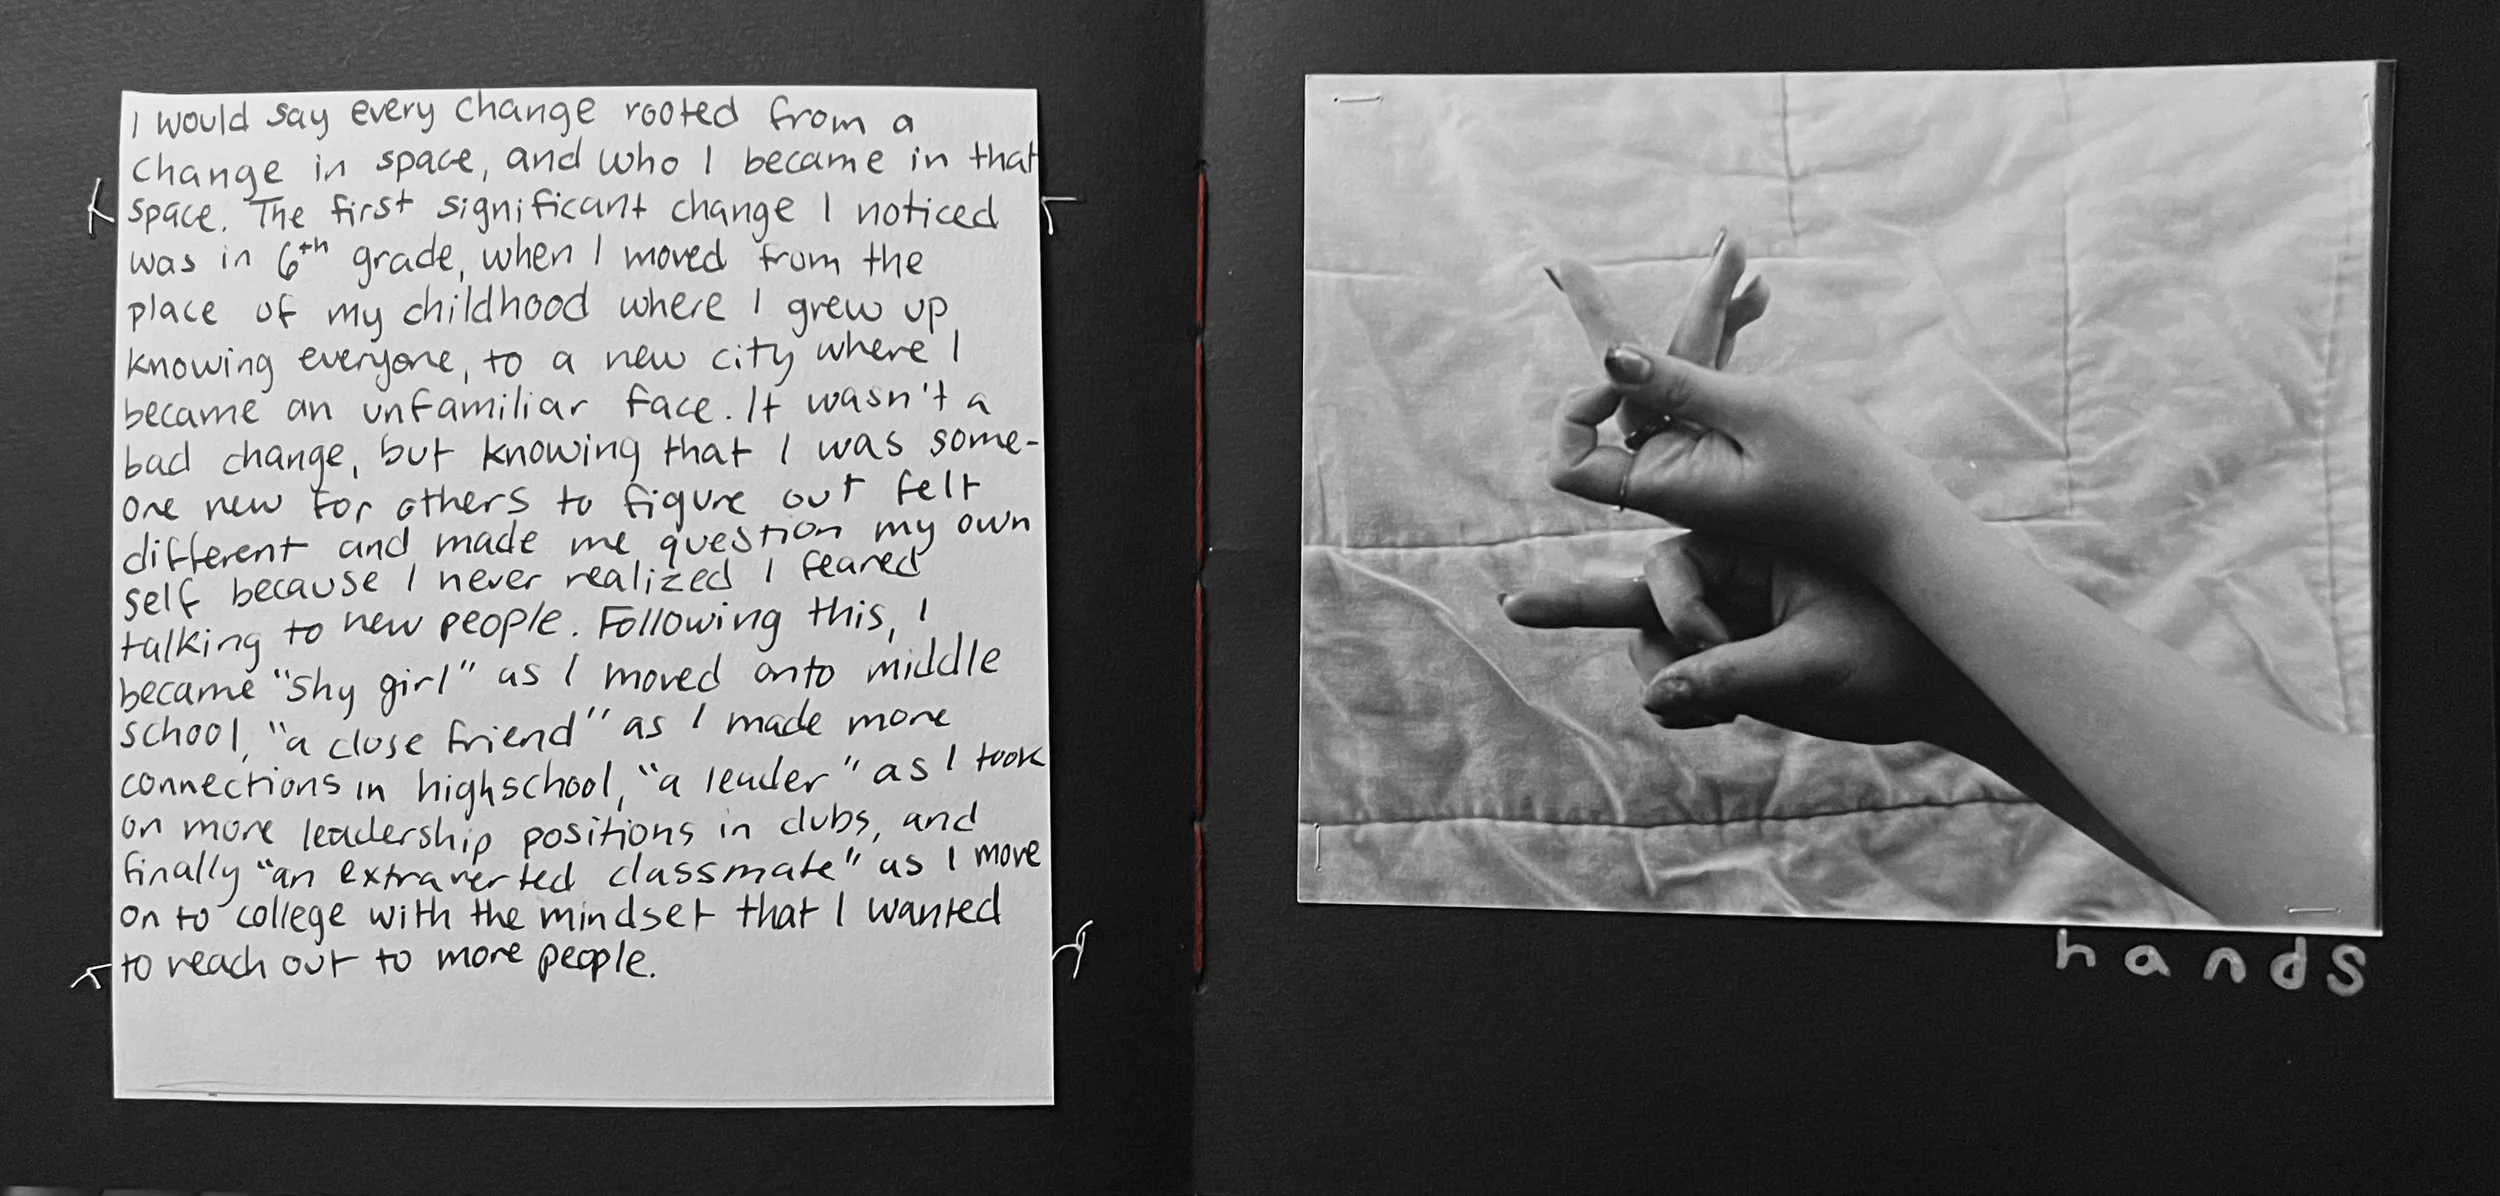 I would say every change rooted from a
change in space, and who I became in that
space. The first significant change I noticed
was in 6th grade, when I moved from the
place of my childhood where I grew up
knowing everyone, to a new city where I
became an unfamiliar face. It wasn't a
bad change, but knowing that I was some-
one new for others to figure out felt
different and made me question my own
self because I never realized I feared
talking to new people. Following this, I
became "shy girl" as I moved onto middle
school, "a close friend" as I made more
connections in highschool, "a leader" as I took
on more leadership positions in clubs, and
finally "an extraverted classmate" as I move
on to college with the mindset that I wanted
to reach out to more people.
hands